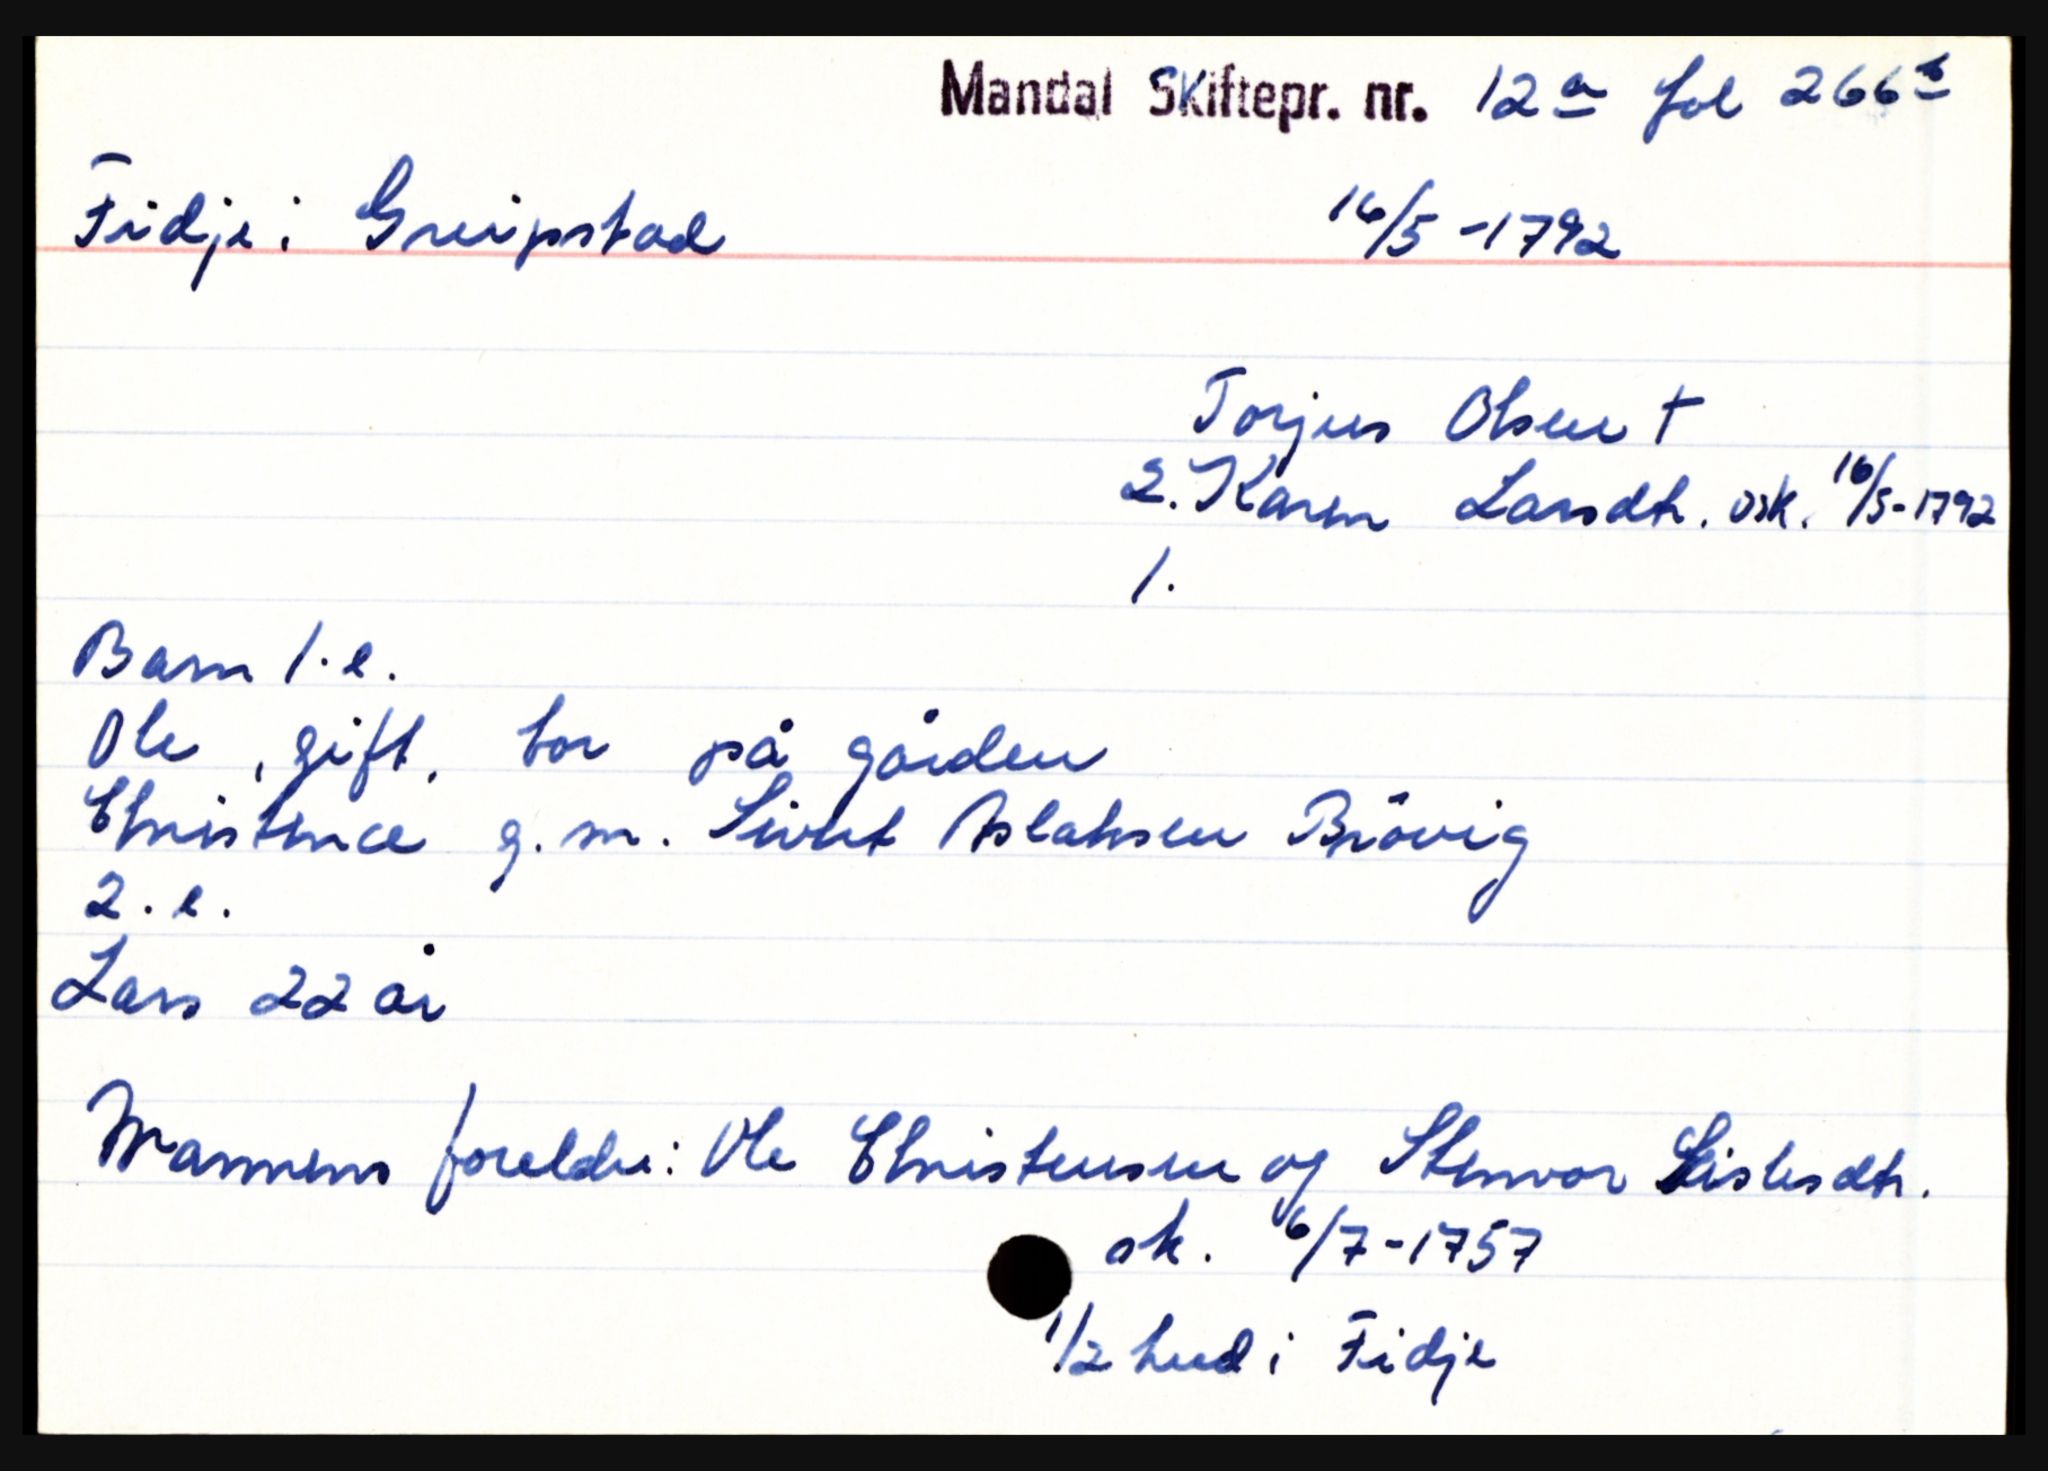 Mandal Skiftepr. nr. 12a fol 266b
Fidje i Greipstad 16/5-1792
Torjus Olsen †
2. Karen Larsdtr. osk. 16/5-1792
1.
Barn 1. e.
Ole, gift, bor på gården
Christence g. m. Sivert Aslaksen Brövig
2. e.
Lars 22 år
Mannens foreldre: Ole Christensen og Stenvor Sislesdtr.
sk. 6/7-1757
1/2 hud i Fidje